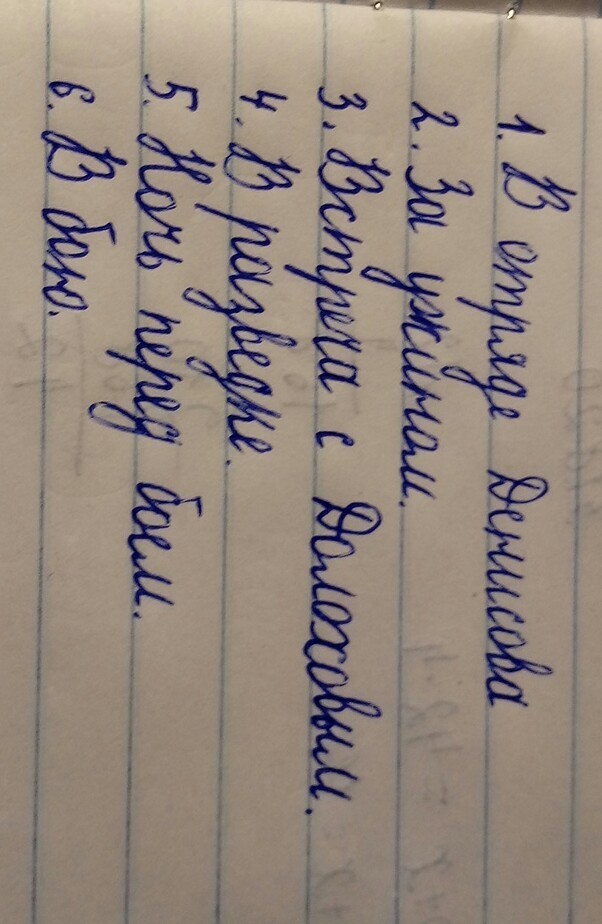 1. В отряде Денисова
2. За ужином.
3. Встреча с Долоховым.
4. В разведке.
5. Ночь перед боем.
6. В бою.